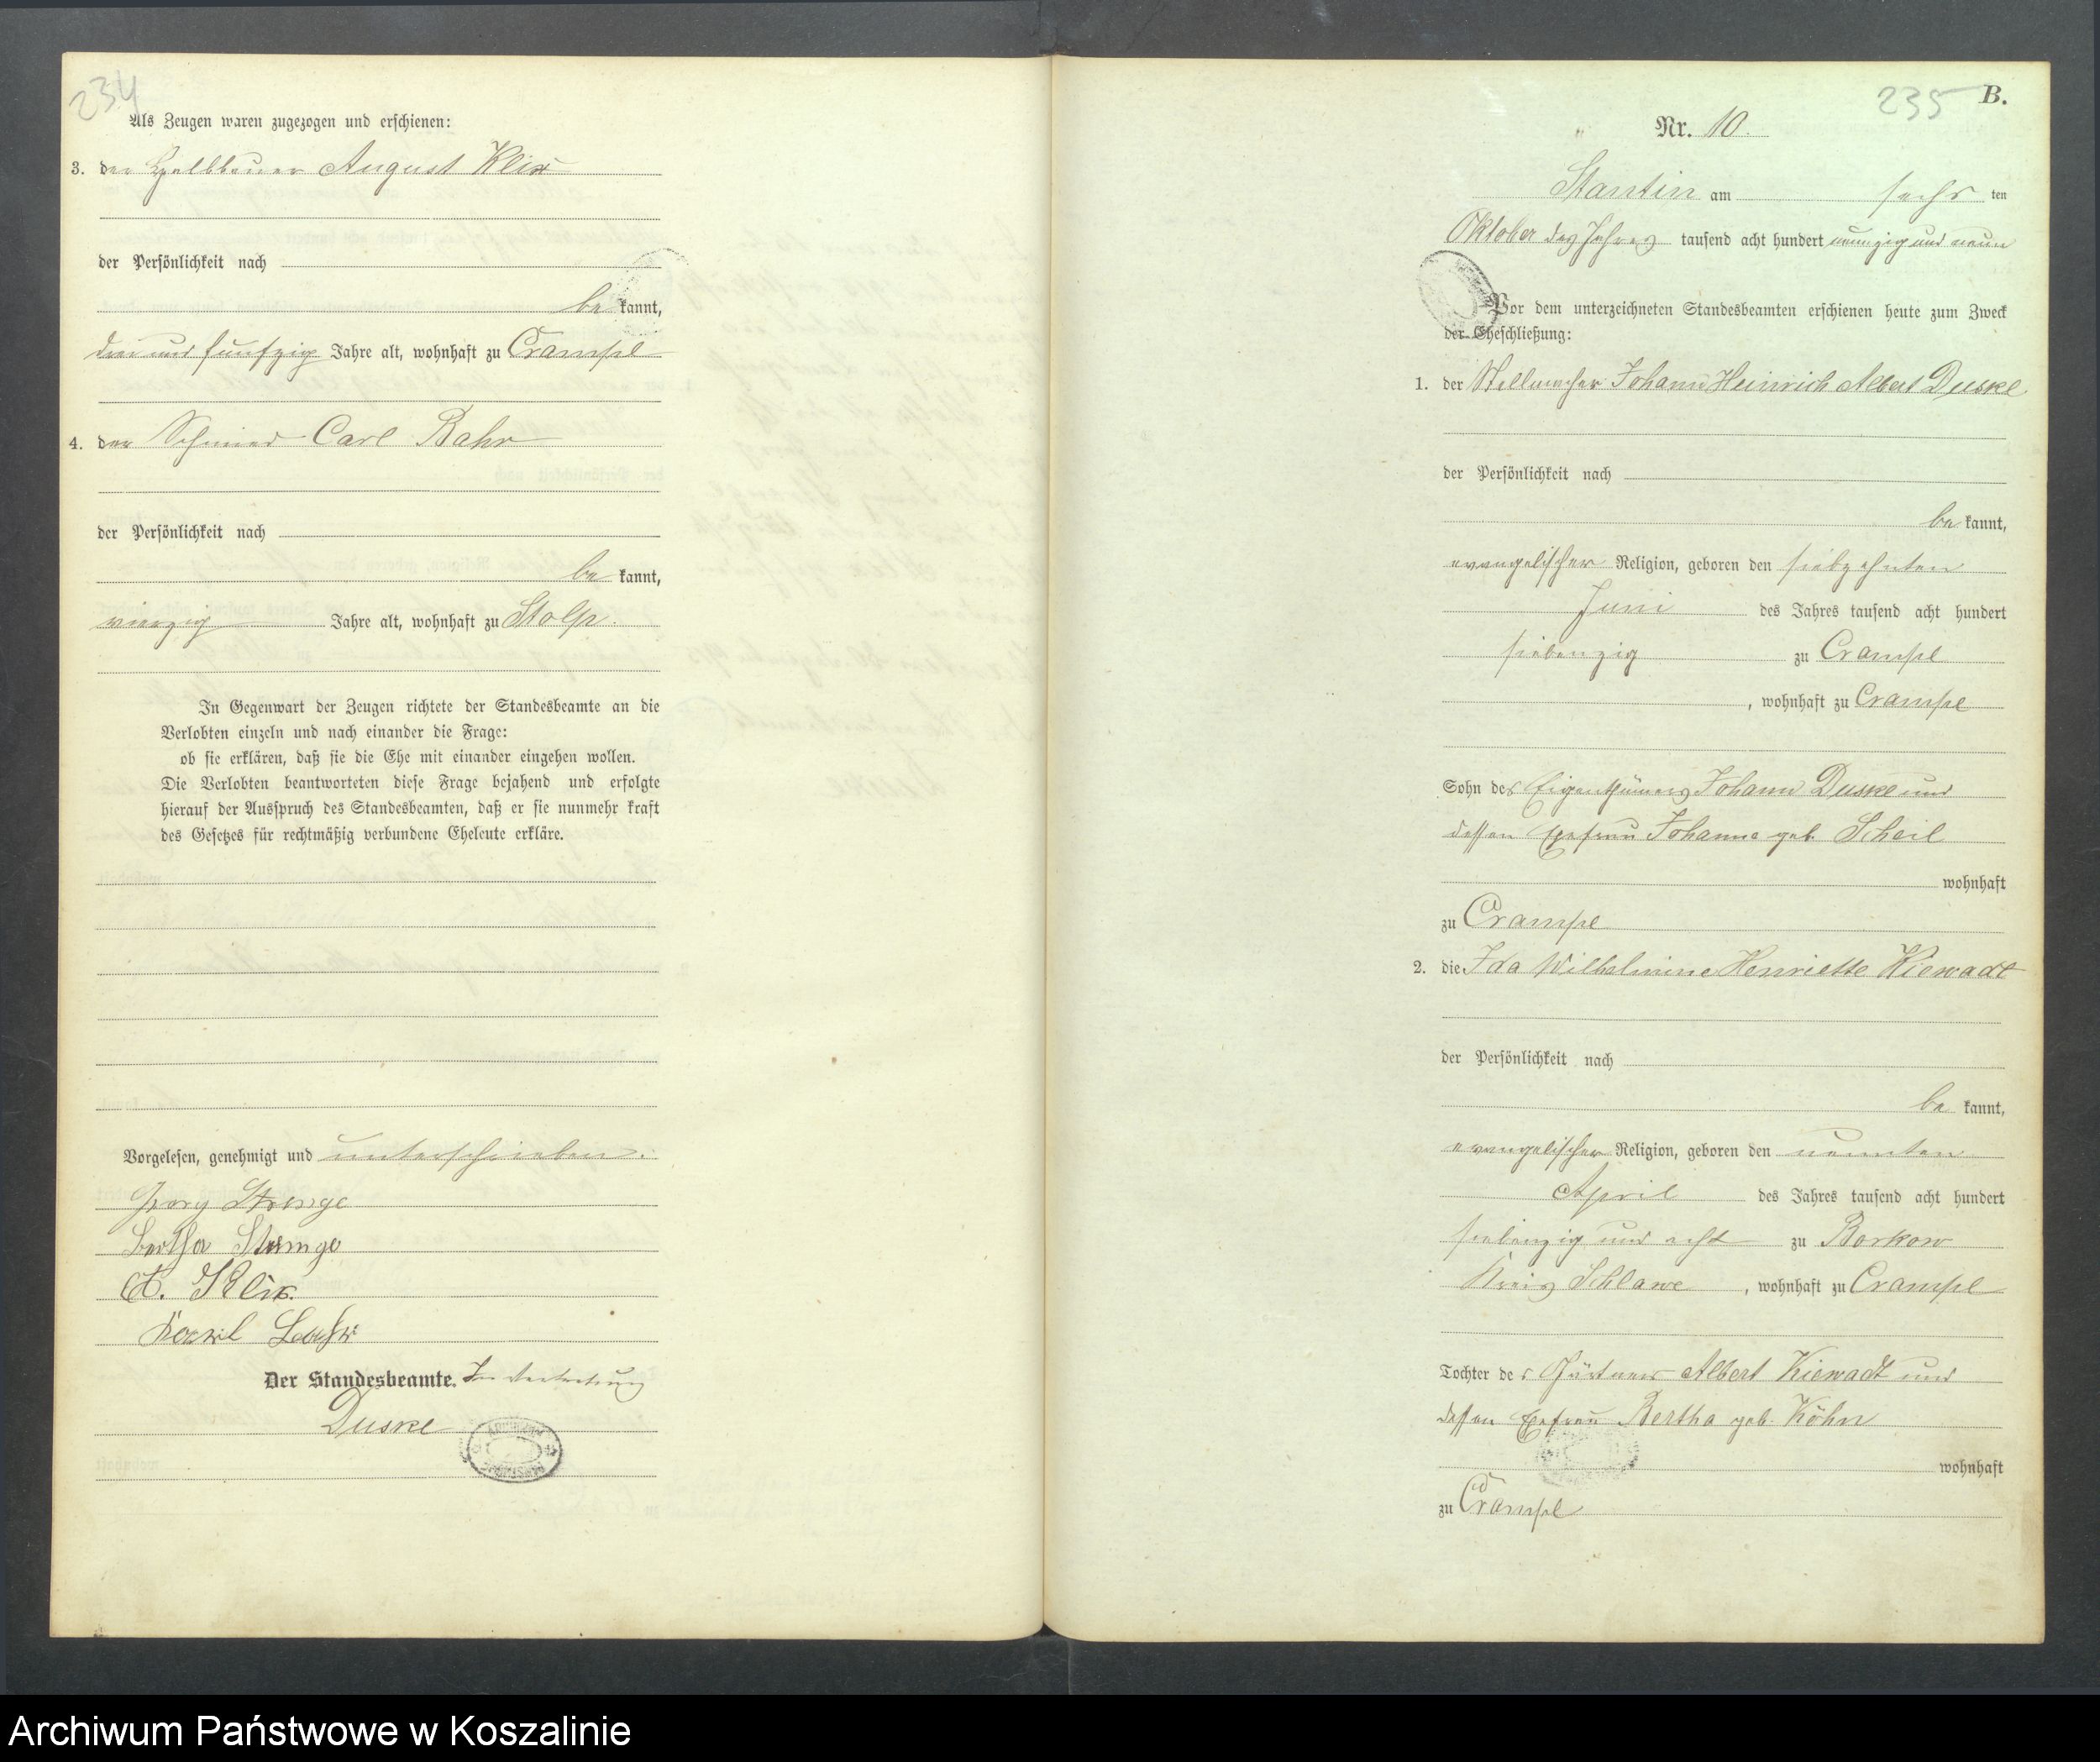 234
Als Zeugen waren zugezogen und erschienen:
3. der Halbbauer August Klix
der Persönlichkeit nach
be kannt,
drei und fünfzig Jahre alt, wohnhaft zu Crampe
4. der Schmied Carl Bahr
der Persönlichkeit nach
be kannt,
vierzig Jahre alt, wohnhaft zu Stolp.
In Gegenwart der Zeugen richtete der Standesbeamte an die
Verlobten einzeln und nach einander die Frage:
ob sie erklären, daß sie die Ehe mit einander eingehen wollen.
Die Verlobten beantworteten diese Frage bejahend und erfolgte
hierauf der Ausspruch des Standesbeamten, daß er sie nunmehr kraft
des Gesetzes für rechtmäßig verbundene Eheleute erkläre.
Vorgelesen, genehmigt und unterschrieben.
Georg Strenge
Bertha Strenge
A. Klix
Der Standesbeamte. In Vertretung
Duske
235 B.
Nr. 10.
Stantin am sechs ten
Oktober des Jahres tausend acht hundert neunzig und neun
Vor dem unterzeichneten Standesbeamten erschienen heute zum Zweck
der Eheschließung:
1. der Stellmacher Johann Heinrich Albert Duske
der Persönlichkeit nach
be kannt,
evangelischer Religion, geboren den siebzehnten
Juni des Jahres tausend acht hundert
siebenzig zu Crampe
, wohnhaft zu Crampe
Sohn des Eigenthümers Johann Duske und
dessen Ehefrau Johanne geb. Scheil
wohnhaft
zu Crampe
2. die Ida Wilhelmine Henriette Kiewadt
der Persönlichkeit nach
be kannt,
evangelischer Religion, geboren den neunten
April des Jahres tausend acht hundert
siebenzig und acht zu Borkow
Kreis Schlawe , wohnhaft zu Crampe
Tochter des Gärtners Albert Kiewadt und
dessen Ehefrau Bertha geb. Köhn
wohnhaft
zu Crampe
Archiwum Państwowe w Koszalinie